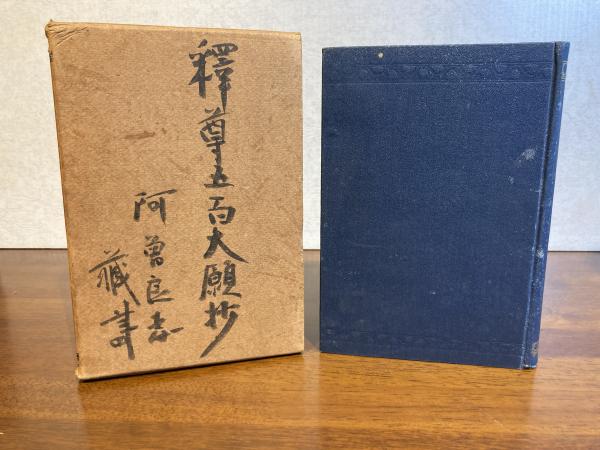 釋尊五百大願抄
阿曽良志
藏書